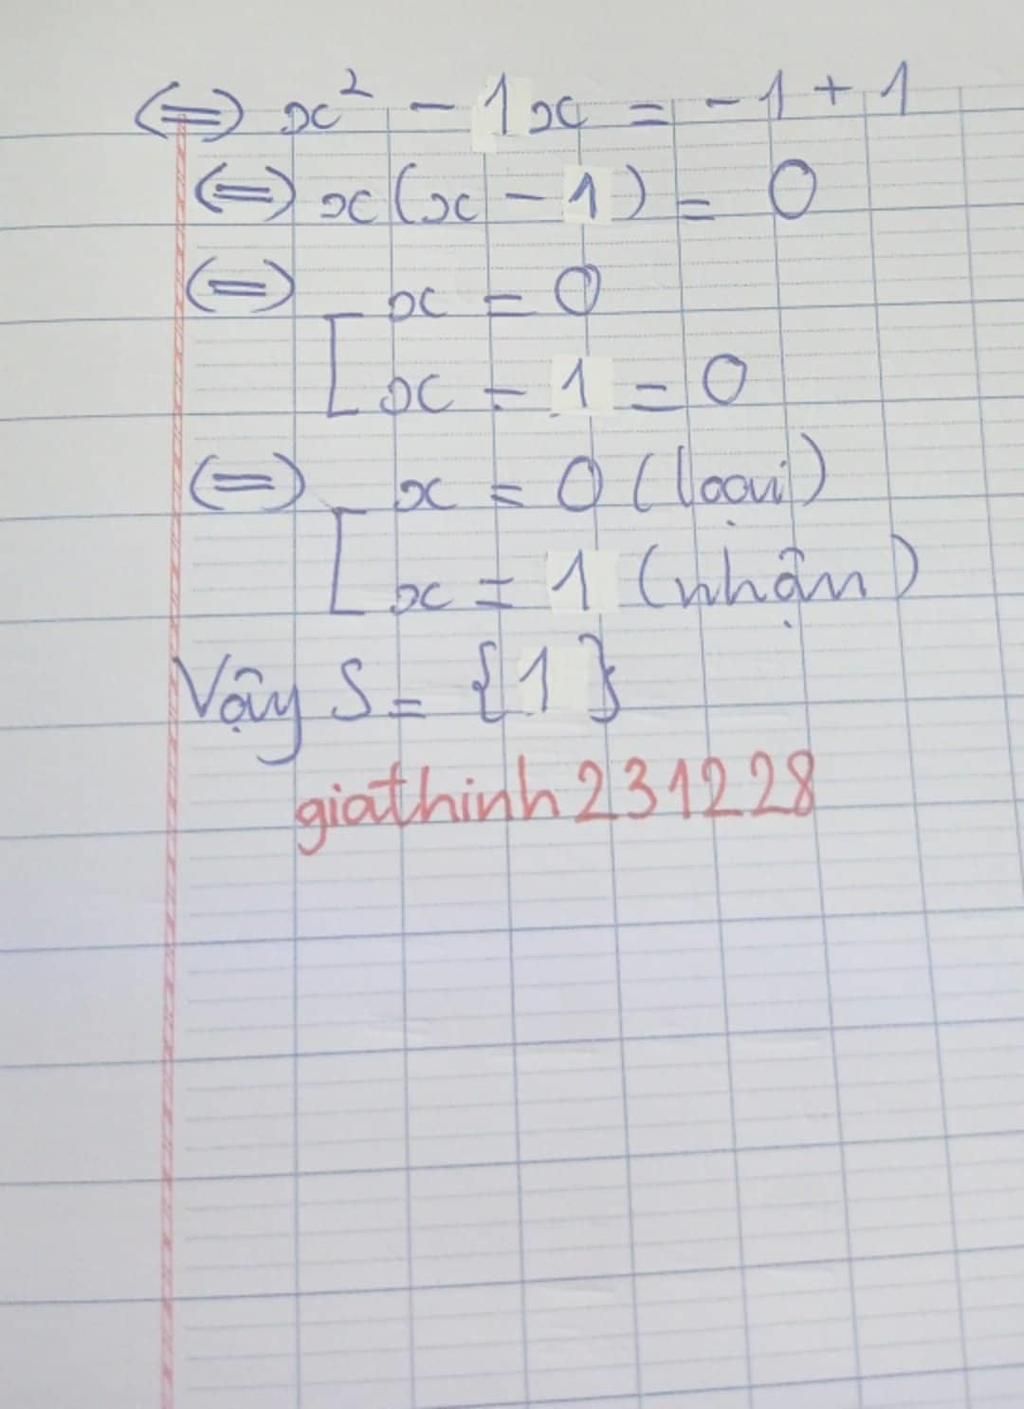 (=) x² - 1x = -1 + 1
(=) x(x - 1) = 0
(=) [ x = 0
x - 1 = 0
(=) [ x = 0 (loại)
x = 1 (nhận)
Vậy S = {1}
giathinh231228